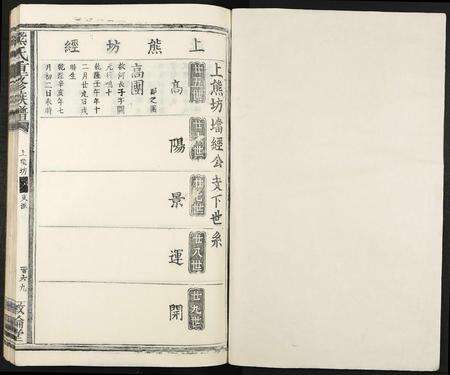 上熊坊經
上熊坊墻經公支下世系
廿五世
高
高團
彭之團
教河長子字團
元行鳴十
乾隆壬午年十
二月廿九日戌
時生
乾隆辛亥年七
月初二日未時
廿六世
陽
廿七世
景
廿八世
運
廿九世
開
氏重修族譜
上熊坊
百六九
敦倫堂